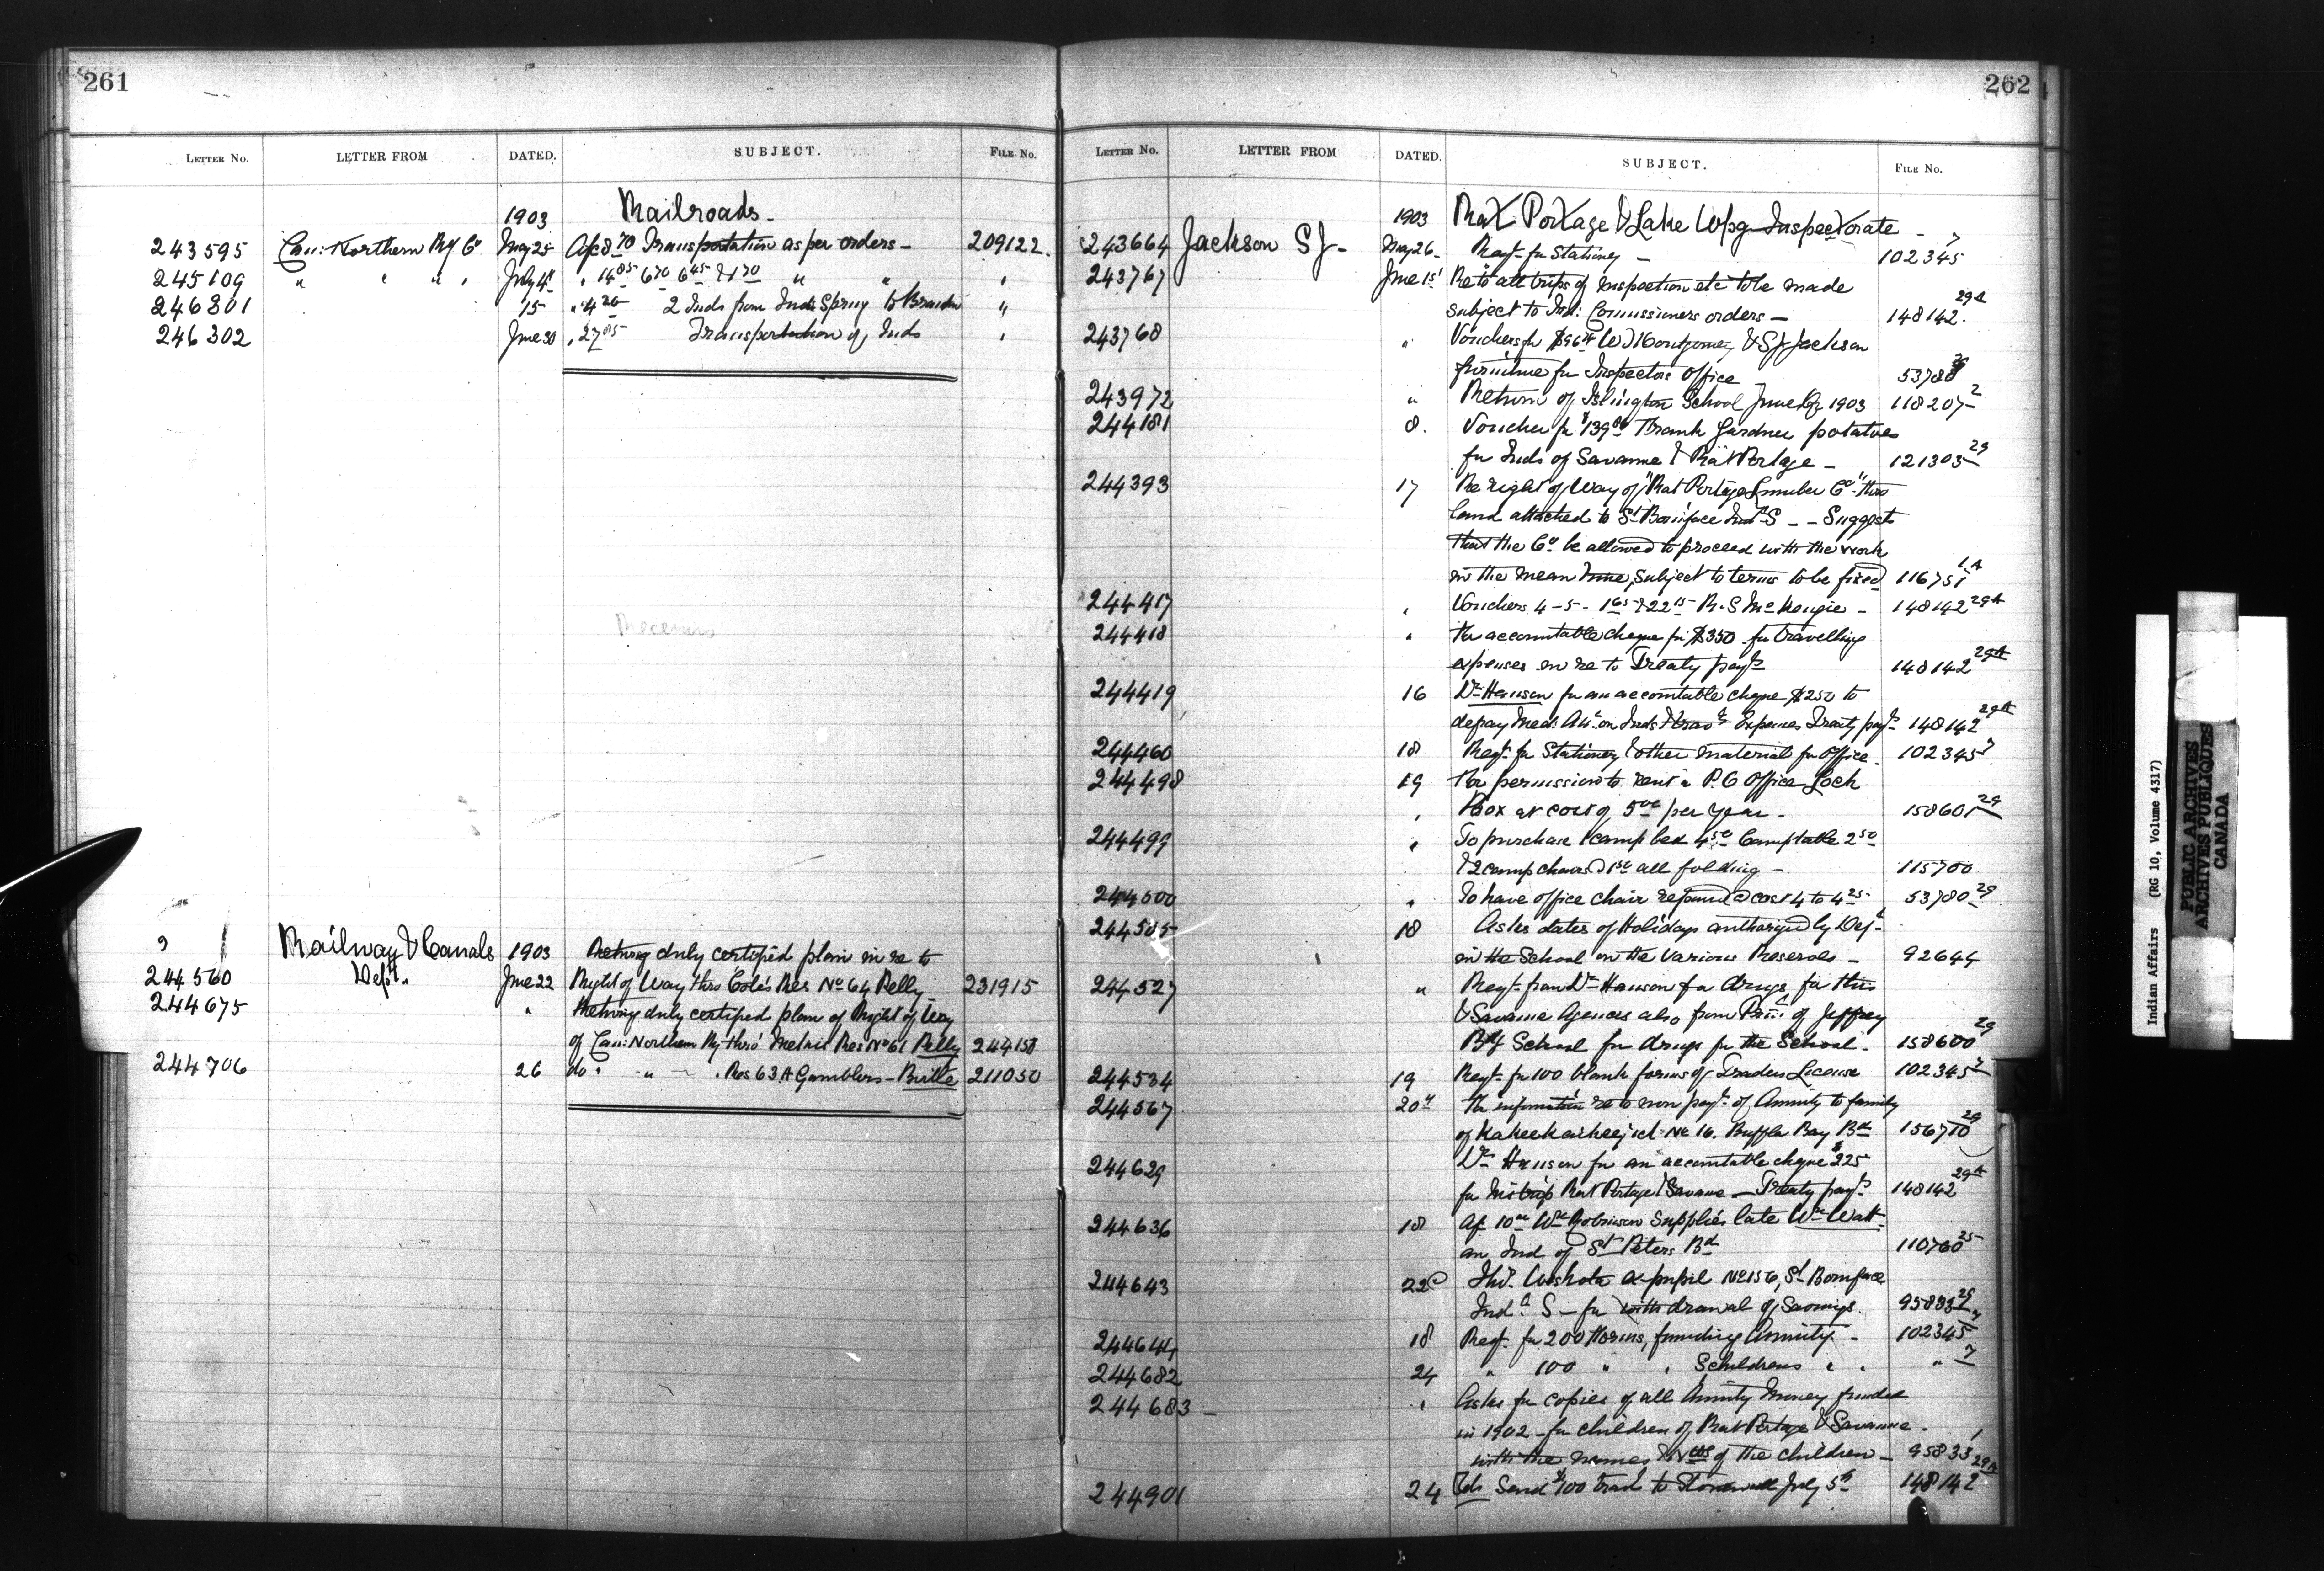 261
LETTER NO. LETTER FROM DATED. SUBJECT. FILE NO.
1903 Railroads -
243595 Can: Northern Ry Co May 25 Ac 8 70 Transportation as per orders - 209122
245109 " " " " July 4 " 14 85 6 70 6 45 & 1 70 " " "
246301 15 " 4 20 2 Inds from Inds Spring to Brandon "
246302 June 30 " 27 05 Transportation of Inds "
Railway & Canals 1903 Returng duly certified plan in re to
244560 Dept. June 22 Right of Way thro Cote's Res No 64 Pelly - 231915
244675 " Returng duly certified plan of Right of Way
of Can: Northern Ry thro' Res No 61 Pelly 244158
244706 26 do " " " Res 63 A Gamblers - Birtle 211050
262
LETTER NO. LETTER FROM DATED. SUBJECT. FILE NO.
1903 Rat Portage & Lake Wpg Inspectorate -
243664 Jackson SJ - May 26 Reqt for Stationery - 102345 7
243767 June 1st Re to all trips of inspection etc to be made
subject to Ind: Commissioners orders - 148142 29A
243768 " Vouchers for $96 & SJ Jackson
furniture for Inspectors Office 53780 29
243972 " Return of Islington School June Qr 1903 118207 2
244181 8. Voucher for $139 Frank Gardner potatoes
for Inds of Savanne & Rat Portage - 121303 29
244393 17 Re right of Way of "Rat Portage Lumber Co" thro
land attached to St Boniface Indl S - - Suggests
that the Co be allowed to proceed with the work
in the mean time, subject to terms to be fixed 116751 1A
244417 " Vouchers 4 - 5 - 1 65 & 22 15 R. S McKenzie - 148142 29A
244418 " For accountable cheque for $350 for travelling
expenses in re to Treaty payts 148142 29A
244419 16 Dr Hanson for an accountable cheque $250 to
defray Med: Att: on Inds & trav Expenses Treaty payts 148142 29A
244460 18 Reqt for Stationery & other material for Office - 102345 7
244498 19 For permission to rent a P. O Office Lock
" Box at cost of 5 00 per year - 158601 29
244499 " To purchase 1 camp bed 4 50 Camp table 2 50
& 2 camp chairs @ all folding - 115700
244500 " To have office chair repaired @ cost 4 to 4 25 - 53780 29
244505 18 Asks dates of Holidays authorized by Dept
in the School on the various Reserves - 92644
244527 " Reqt from Dr Hanson for drugs for this
& Savanne Agencies also from Prin: of Jeffrey
Bdg School for drugs for the School - 158600 29
244534 19 Reqt for 100 blank forms of Traders License 102345 7
244567 20th For information re to non payt of Annuity to family
of No 16. Buffalo Bay Bd 156710 29
244629 Dr Hanson for an accountable cheque $225
for his trip Rat Portage & Savanne - Treaty payts 148142 29A
244636 18 Ac 10 00 Wm Robinson supplies late Wm Watt
an Ind of St Peters Bd 110760 25
244643 22d Ths. ex-pupil No 156, St Boniface
Indl S - for withdrawal of Savings 95833
244644 18 Reqt for 200 Forms, funding Annuity - 102345 7
244682 24 " 100 " " Schildrens " " " 7
244683 - " Asks for copies of all Annuity Money funded
in 1902 - for children of Rat Portage & Savanne -
with the names & Nos of the children - 95833 1
244901 24 Send $100 to Stonewall July 5th 148142 29A
Indian Affairs (RG 10, Volume 4317)
PUBLIC ARCHIVES
ARCHIVES PUBLIQUES
CANADA